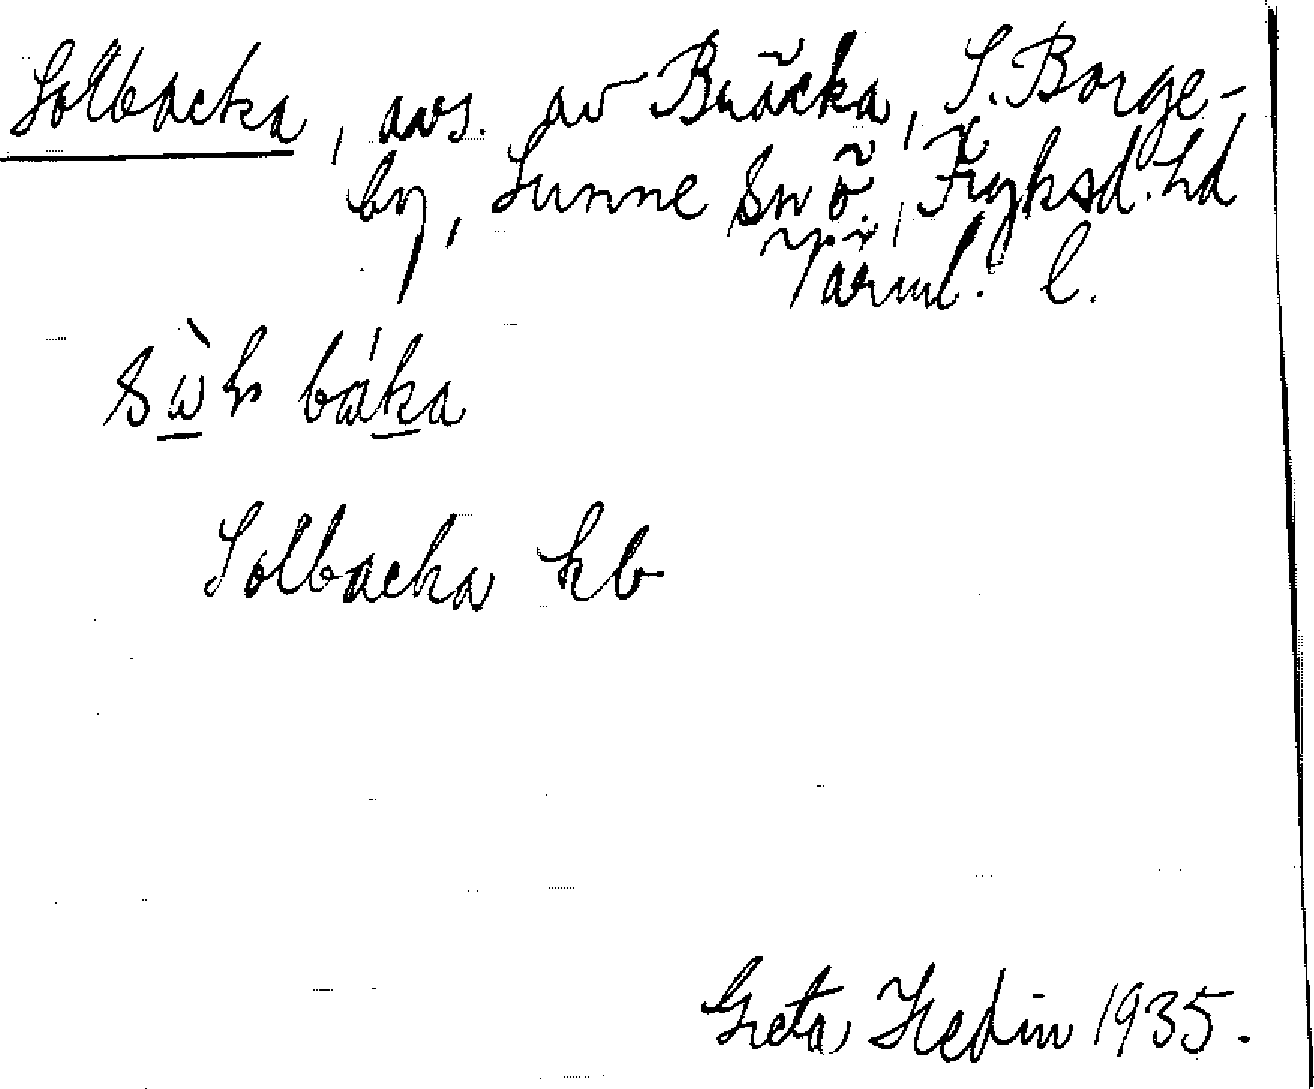 Solbacka, avs. av Bräcka, S. Borge-
by, Sunne sn ö., Fryksd. hd
Värml. l.
bàka
Solbacka kb
Greta Hedin 1935.